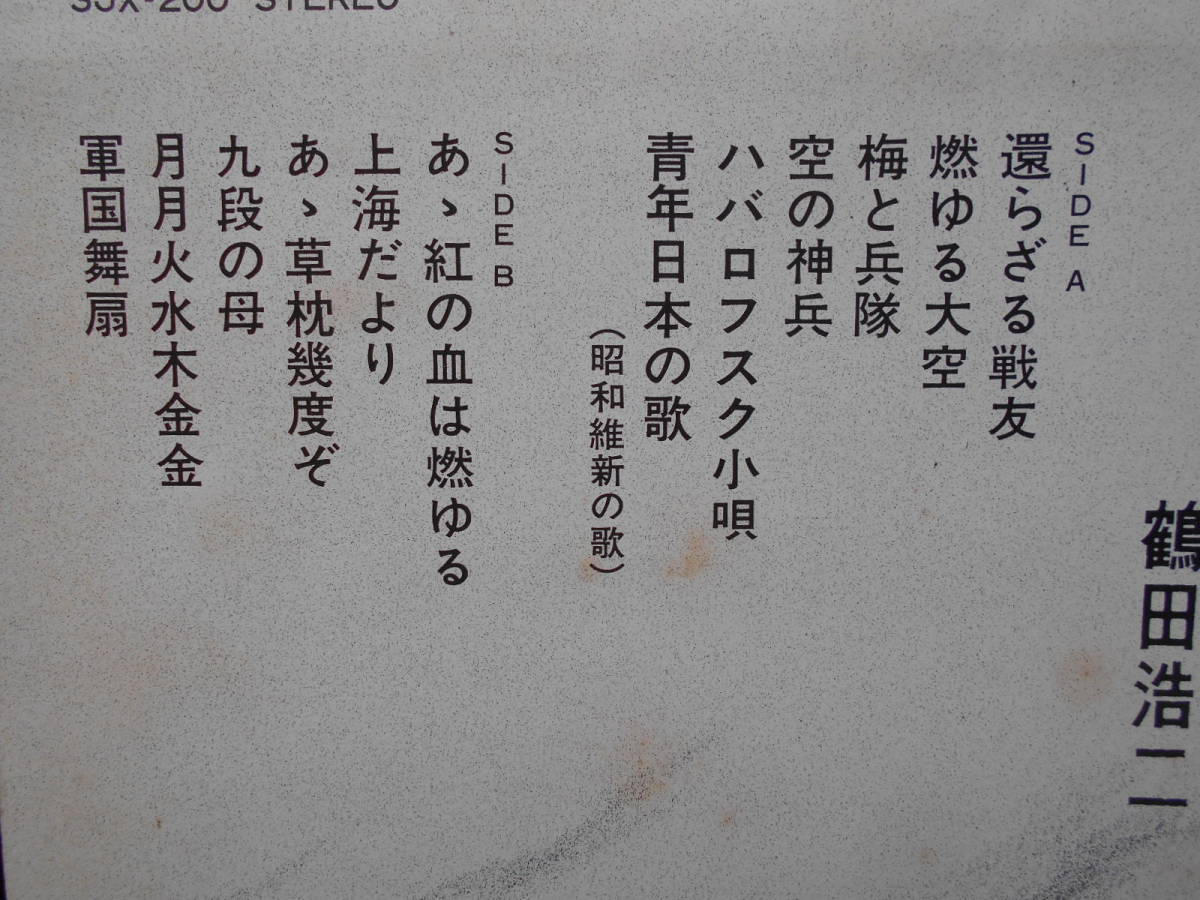 SJX-200 STEREO
鶴田浩二
SIDE A
還らざる戦友
燃ゆる大空
梅と兵隊
空の神兵
ハバロフスク小唄
青年日本の歌
（昭和維新の歌）
SIDE B
あゝ紅の血は燃ゆる
上海だより
あゝ草枕幾度ぞ
九段の母
月月火水木金金
軍国舞扇